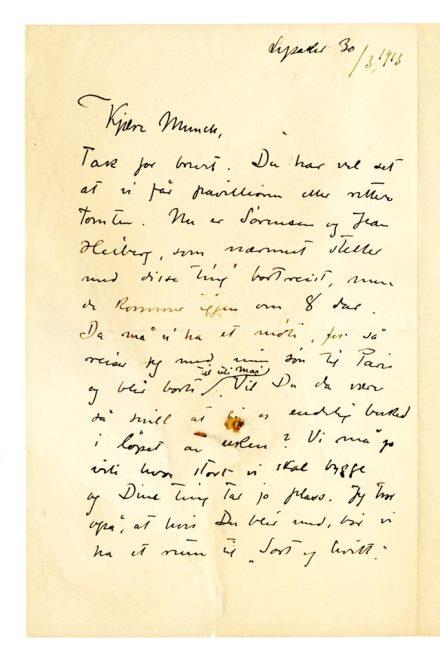 Lysaker 30/3, 1913
Kjære Munch,
Tak for brevet. Du har vel set
at vi får pavillionen eller rettere
tomten. Nu er Sørensen og Jean
Heiberg, som nærmest steller
med disse ting bortreist, men
de kommer igjen om 8 dar.
Da må vi ha et møte, for så
reiser jeg med min søn til Paris
og blir borte til uti mai. Vil Du da være
så snill at gi os endelig besked
i løpet av uken? Vi må jo
vite hvor stort vi skal bygge
og Dine ting tar jo plass. Jeg tror
også, at hvis Du blir med, bør vi
ha et rum til „Sort og hvitt".